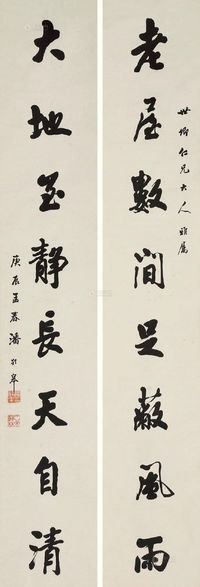 世卿仁兄大人雅屬
老屋數間足蔽風雨
大地至靜長天自清
庚辰孟春潘齡皋